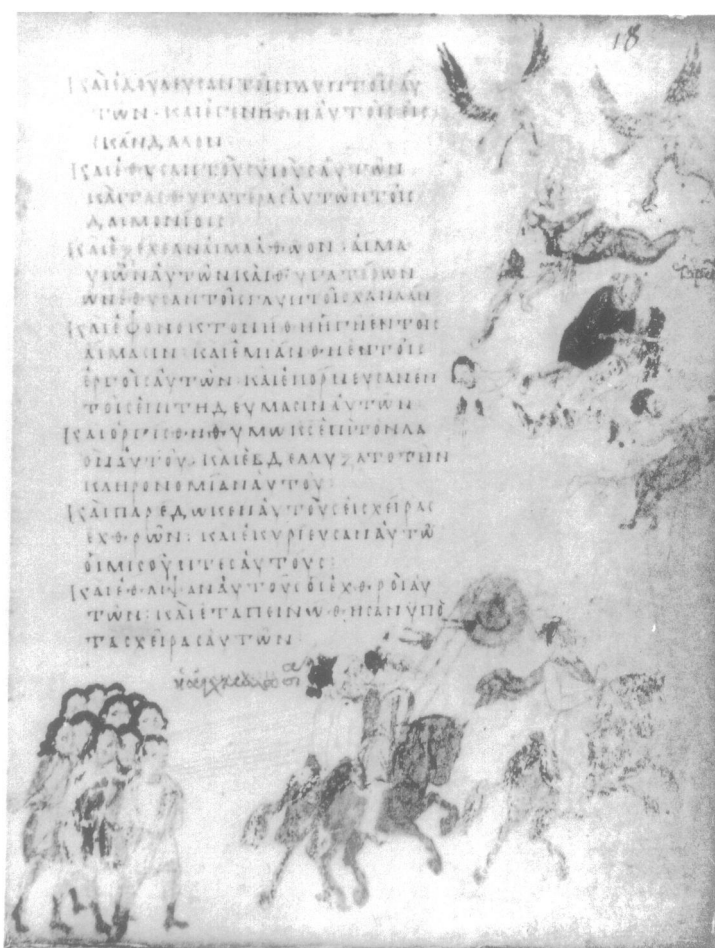 18
ΚΑΙ ΕΔΟΥΛΕΥΣΑΝ ΤΟΙΣ ΓΛΥΠΤΟΙΣ ΑΥ
ΤΩΝ · ΚΑΙ ΕΓΕΝΗΘΗ ΑΥΤΟΙΣ ΕΙΣ
ΣΚΑΝΔΑΛΟΝ
ΚΑΙ ΕΘΥΣΑΝ ΤΟΥΣ ΥΙΟΥΣ ΑΥΤΩΝ
ΚΑΙ ΤΑΣ ΘΥΓΑΤΕΡΑΣ ΑΥΤΩΝ ΤΟΙΣ
ΔΑΙΜΟΝΙΟΙΣ
ΚΑΙ ΕΞΕΧΕΑΝ ΑΙΜΑ ΑΘΩΟΝ · ΑΙΜΑ
ΥΙΩΝ ΑΥΤΩΝ ΚΑΙ ΘΥΓΑΤΕΡΩΝ
ΩΝ ΕΘΥΣΑΝ ΤΟΙΣ ΓΛΥΠΤΟΙΣ ΧΑΝΑΑΝ
ΚΑΙ ΕΦΟΝΟΚΤΟΝΗΘΗ Η ΓΗ ΕΝ ΤΟΙΣ
ΑΙΜΑΣΙΝ · ΚΑΙ ΕΜΙΑΝΘΗ ΕΝ ΤΟΙΣ
ΕΡΓΟΙΣ ΑΥΤΩΝ · ΚΑΙ ΕΠΟΡΝΕΥΣΑΝ ΕΝ
ΤΟΙΣ ΕΠΙΤΗΔΕΥΜΑΣΙΝ ΑΥΤΩΝ
ΚΑΙ ΟΡΓΙΣΘΗ ΘΥΜΩ ΚΣ ΕΠΙ ΤΟΝ ΛΑ
ΟΝ ΑΥΤΟΥ · ΚΑΙ ΕΒΔΕΛΛΥΞΑΤΟ ΤΗΝ
ΚΛΗΡΟΝΟΜΙΑΝ ΑΥΤΟΥ :
ΚΑΙ ΠΑΡΕΔΩΚΕΝ ΑΥΤΟΥΣ ΕΙΣ ΧΕΙΡΑΣ
ΕΧΘΡΩΝ : ΚΑΙ ΕΚΥΡΙΕΥΣΑΝ ΑΥΤΩ
ΟΙ ΜΙΣΟΥΝΤΕΣ ΑΥΤΟΥΣ :
ΚΑΙ ΕΘΛΙΨΑΝ ΑΥΤΟΥΣ ΟΙ ΕΧΘΡΟΙ ΑΥ
ΤΩΝ : ΚΑΙ ΕΤΑΠΕΙΝΩΘΗΣΑΝ ΥΠΟ
ΤΑΣ ΧΕΙΡΑΣ ΑΥΤΩΝ